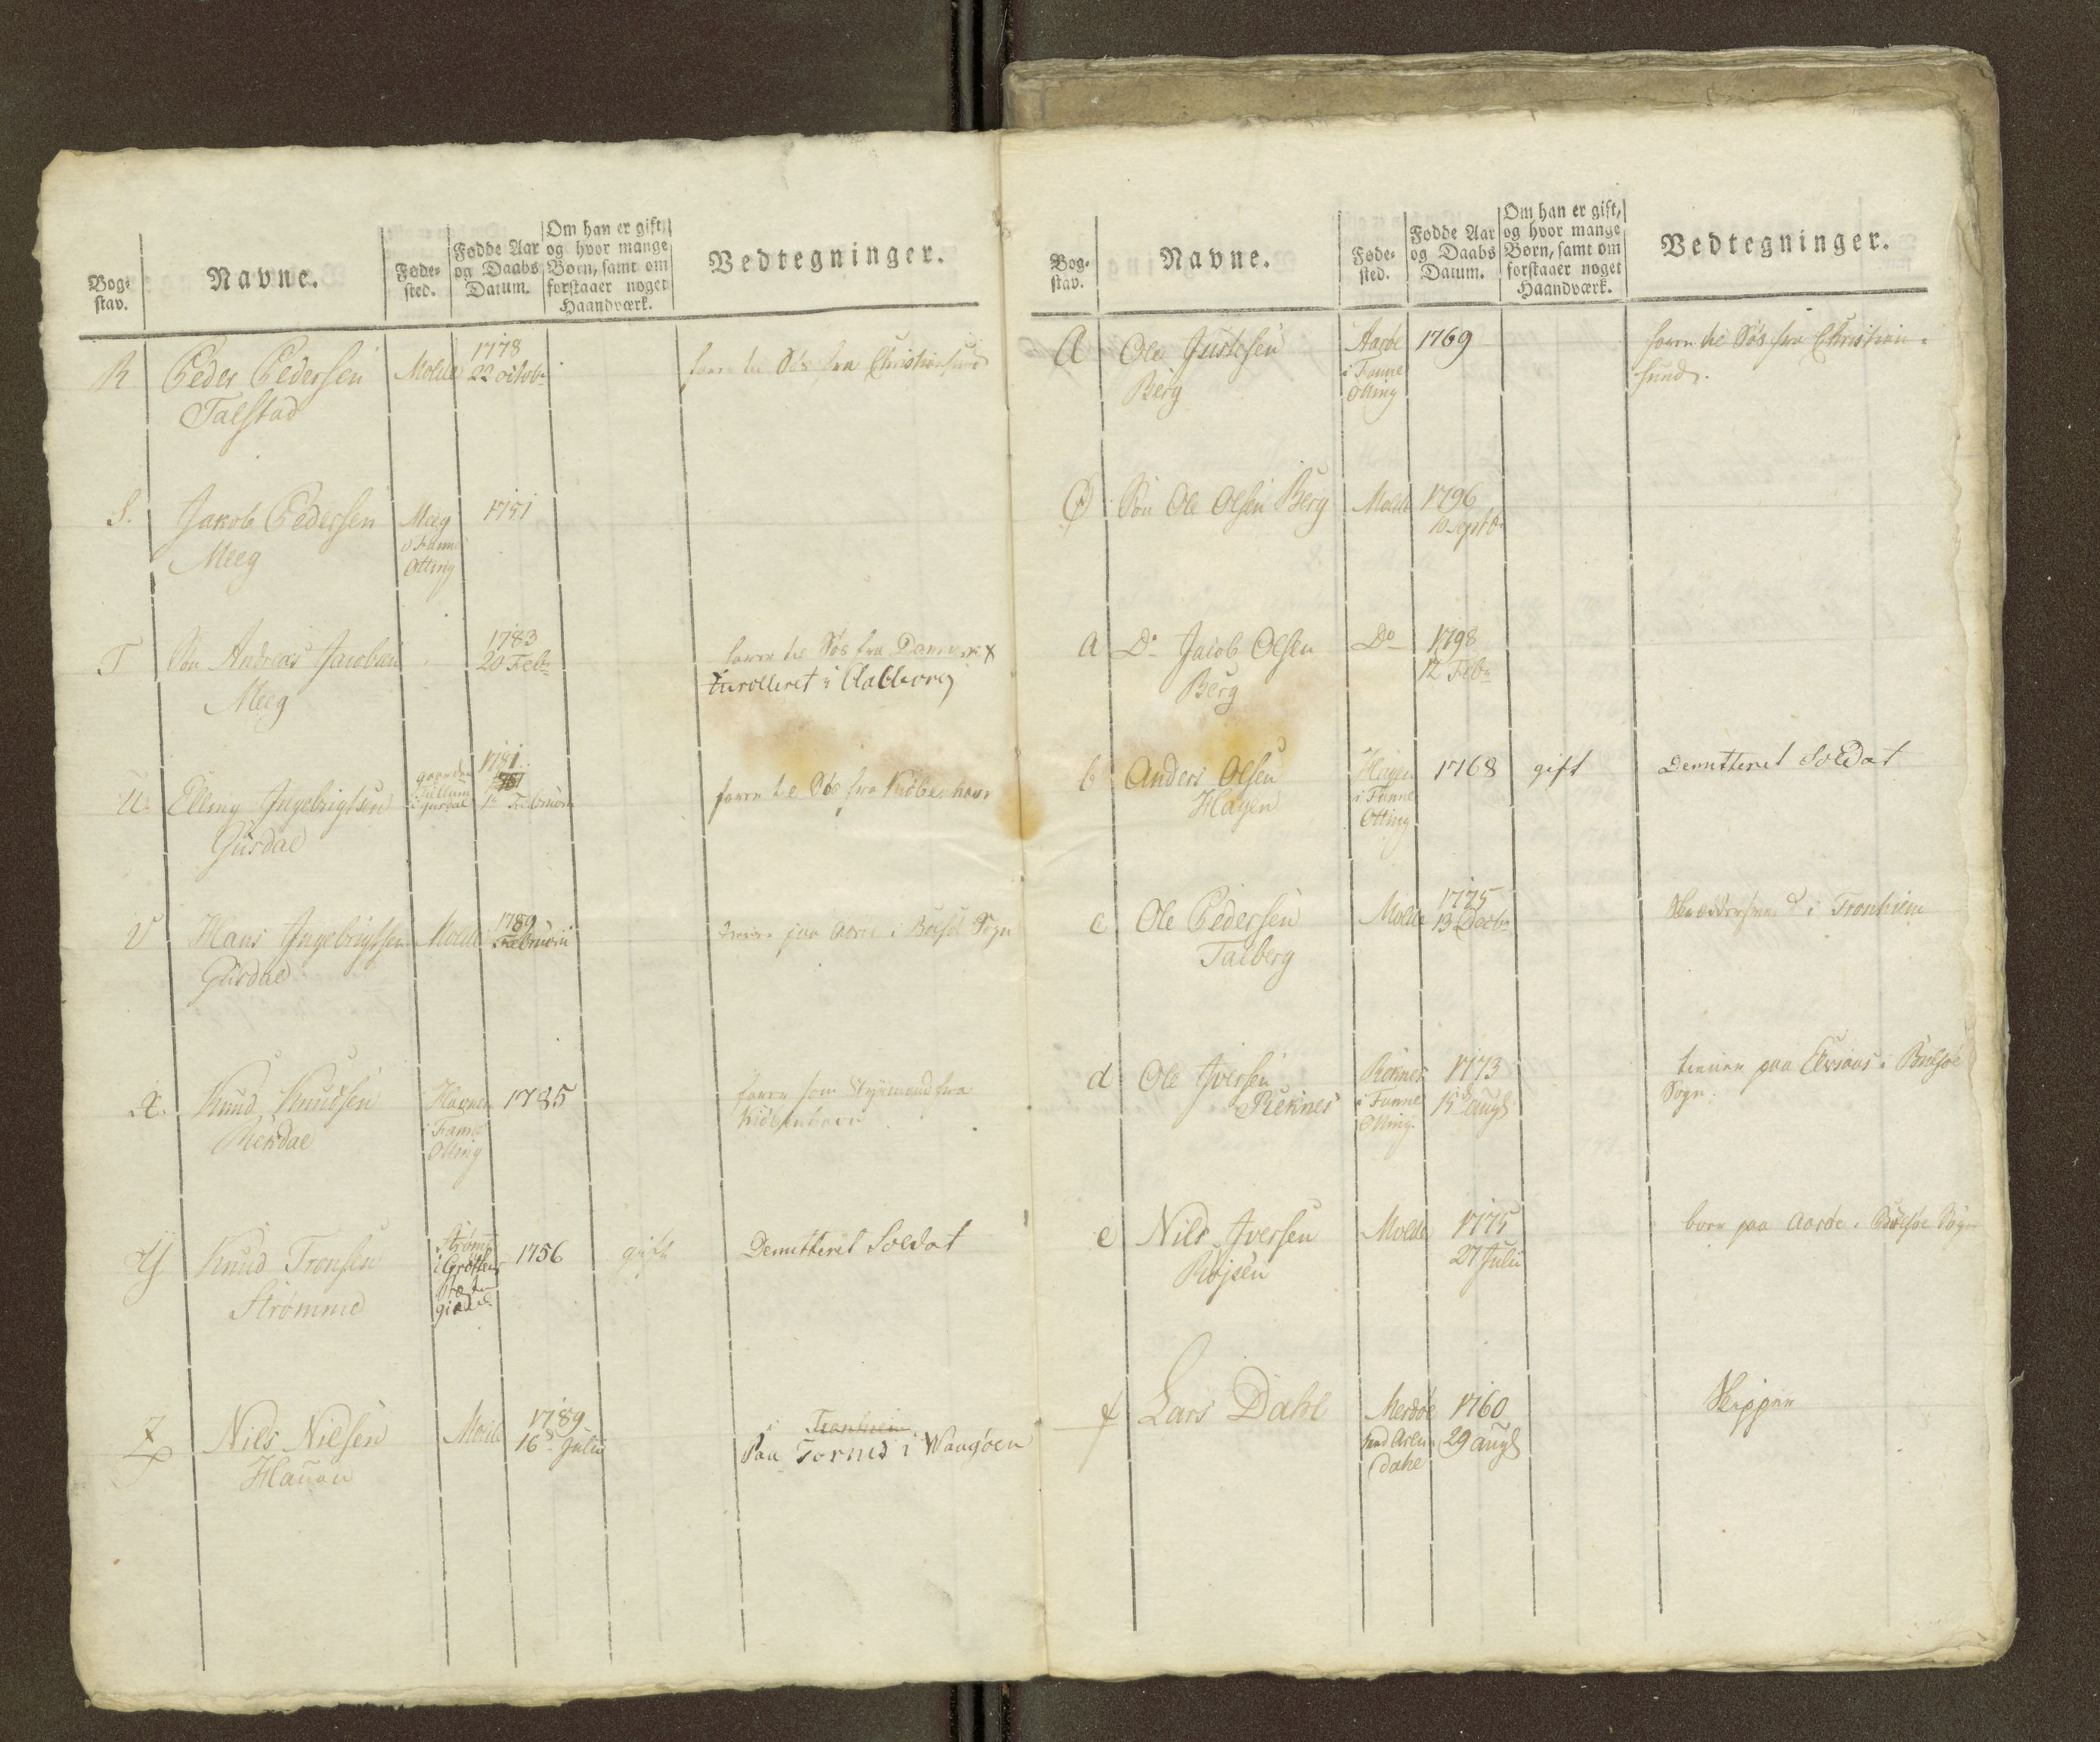 Bog-
stav.
Navne.
Føde-
sted.
Fødde Aar
og Daabs
Datum.
Om han er gift,
og hvor mange
Børn, samt om
forstaaer noget
Haandværk.
Vedtegninger.
R
Peder Pedersen
Talstad
Molde
1778
22 octobr
farer til Søs fra Christiansund
S.
Jakob Pedersen
Meeg
Meeg
i Fanne
Otting
1751
T
Søn Andreas Jacobsen
Meeg
1783
20 Febr
farer til Søs fra
Enrolleret i Aalborg
U.
Elling Ingebrigtsen
Gusdal
1781
Februari
farer til Søs fra Kiøbenhavn
V
Hans Ingebrigtsen
Gusdal
Molde
1789
Februarii
paa Aarøe i Sogn
X.
Knud Knudsen
Havnen
i Fanne
Otting
1785
farer som Styrmand fra
Kiøbenhavn
Y
Knud Tronsen
Strømme
Strømme
i Grøtten
Præste
gield
1756
gift
Demitteret Soldat
Z
Nils Nilsen
Hauan
Molde
1789
16 Julii
i Tronhiem
Paa Tornes i Waagøen
Bog-
stav.
Navne.
Føde-
sted.
Fødde Aar
og Daabs
Datum.
Om han er gift,
og hvor mange
Børn, samt om
forstaaer noget
Haandværk.
Vedtegninger.
Æ
Ole Justesen
Berg
Aarøe
i Fanne
Otting
1769
farer til Søs fra Christian-
sund.
Ø
Søn Ole Olsen Berg
Molde
1796
10 Septbr
a
Do Jacob Olsen
Berg
Do
1798
12 Febr
b
Anders Olsen
Hagen
Hagen
i Fanne
Otting
1768
gift
Demitteret Soldat
c
Ole Pedersen
Talberg
Molde
1775
13 Decbr
Skræddersvend i Tronhiem
d
Ole Iversen
Reknes
Reknes
i Fanne
Otting
1773
15 augs
tiener paa i Bolsøe
Sogn.
e
Nils Iversen
Røjsen
Molde
1775
27 Julii
boer paa Aarøe i Bolsøe Sogn
f
Lars Dahl
Merdøe
ved Aren
dahl
1760
29 augs
Skipper